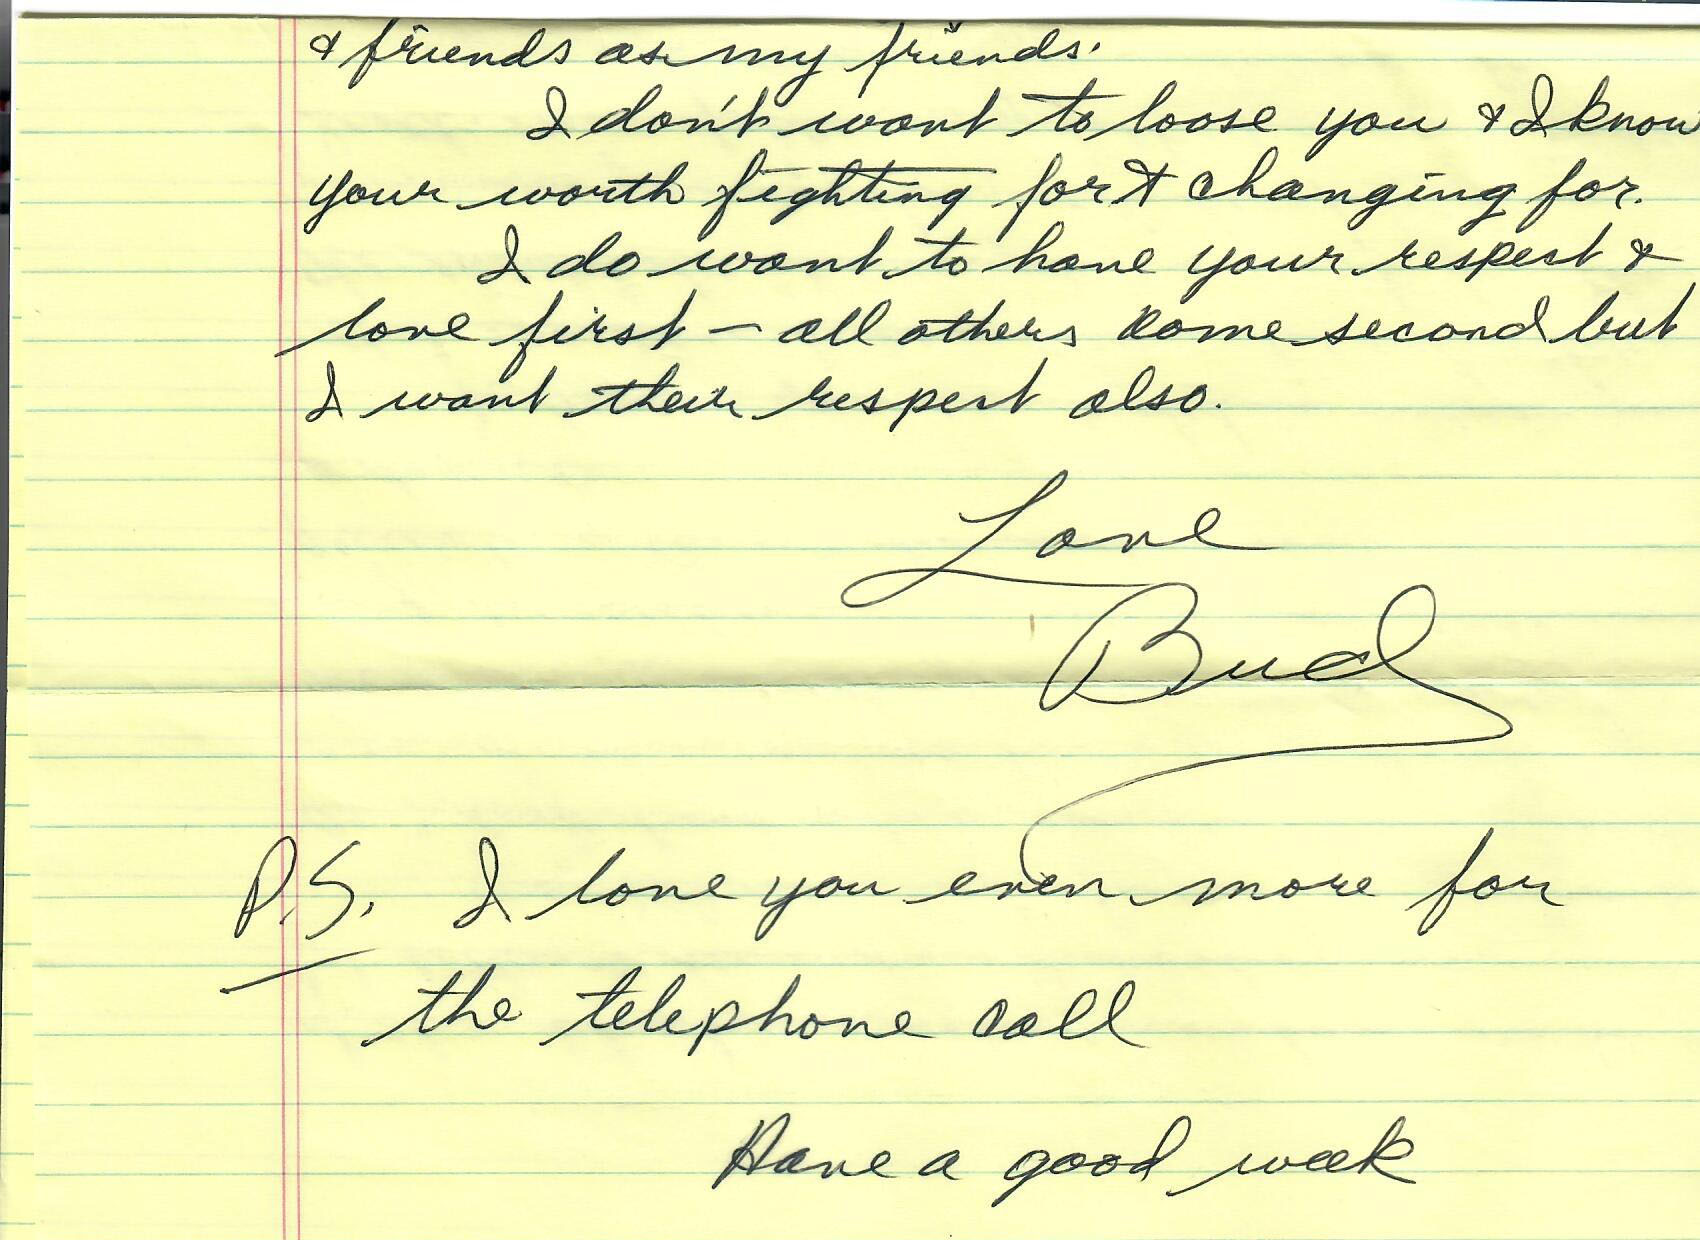 & friends as my friends.
I don't want to loose you & I know
your worth fighting for & changing for.
I do want to have your respect &
love first – all others come second but
I want their respect also.
Love
Bud
P.S. I love you even more for
the telephone call
Have a good week